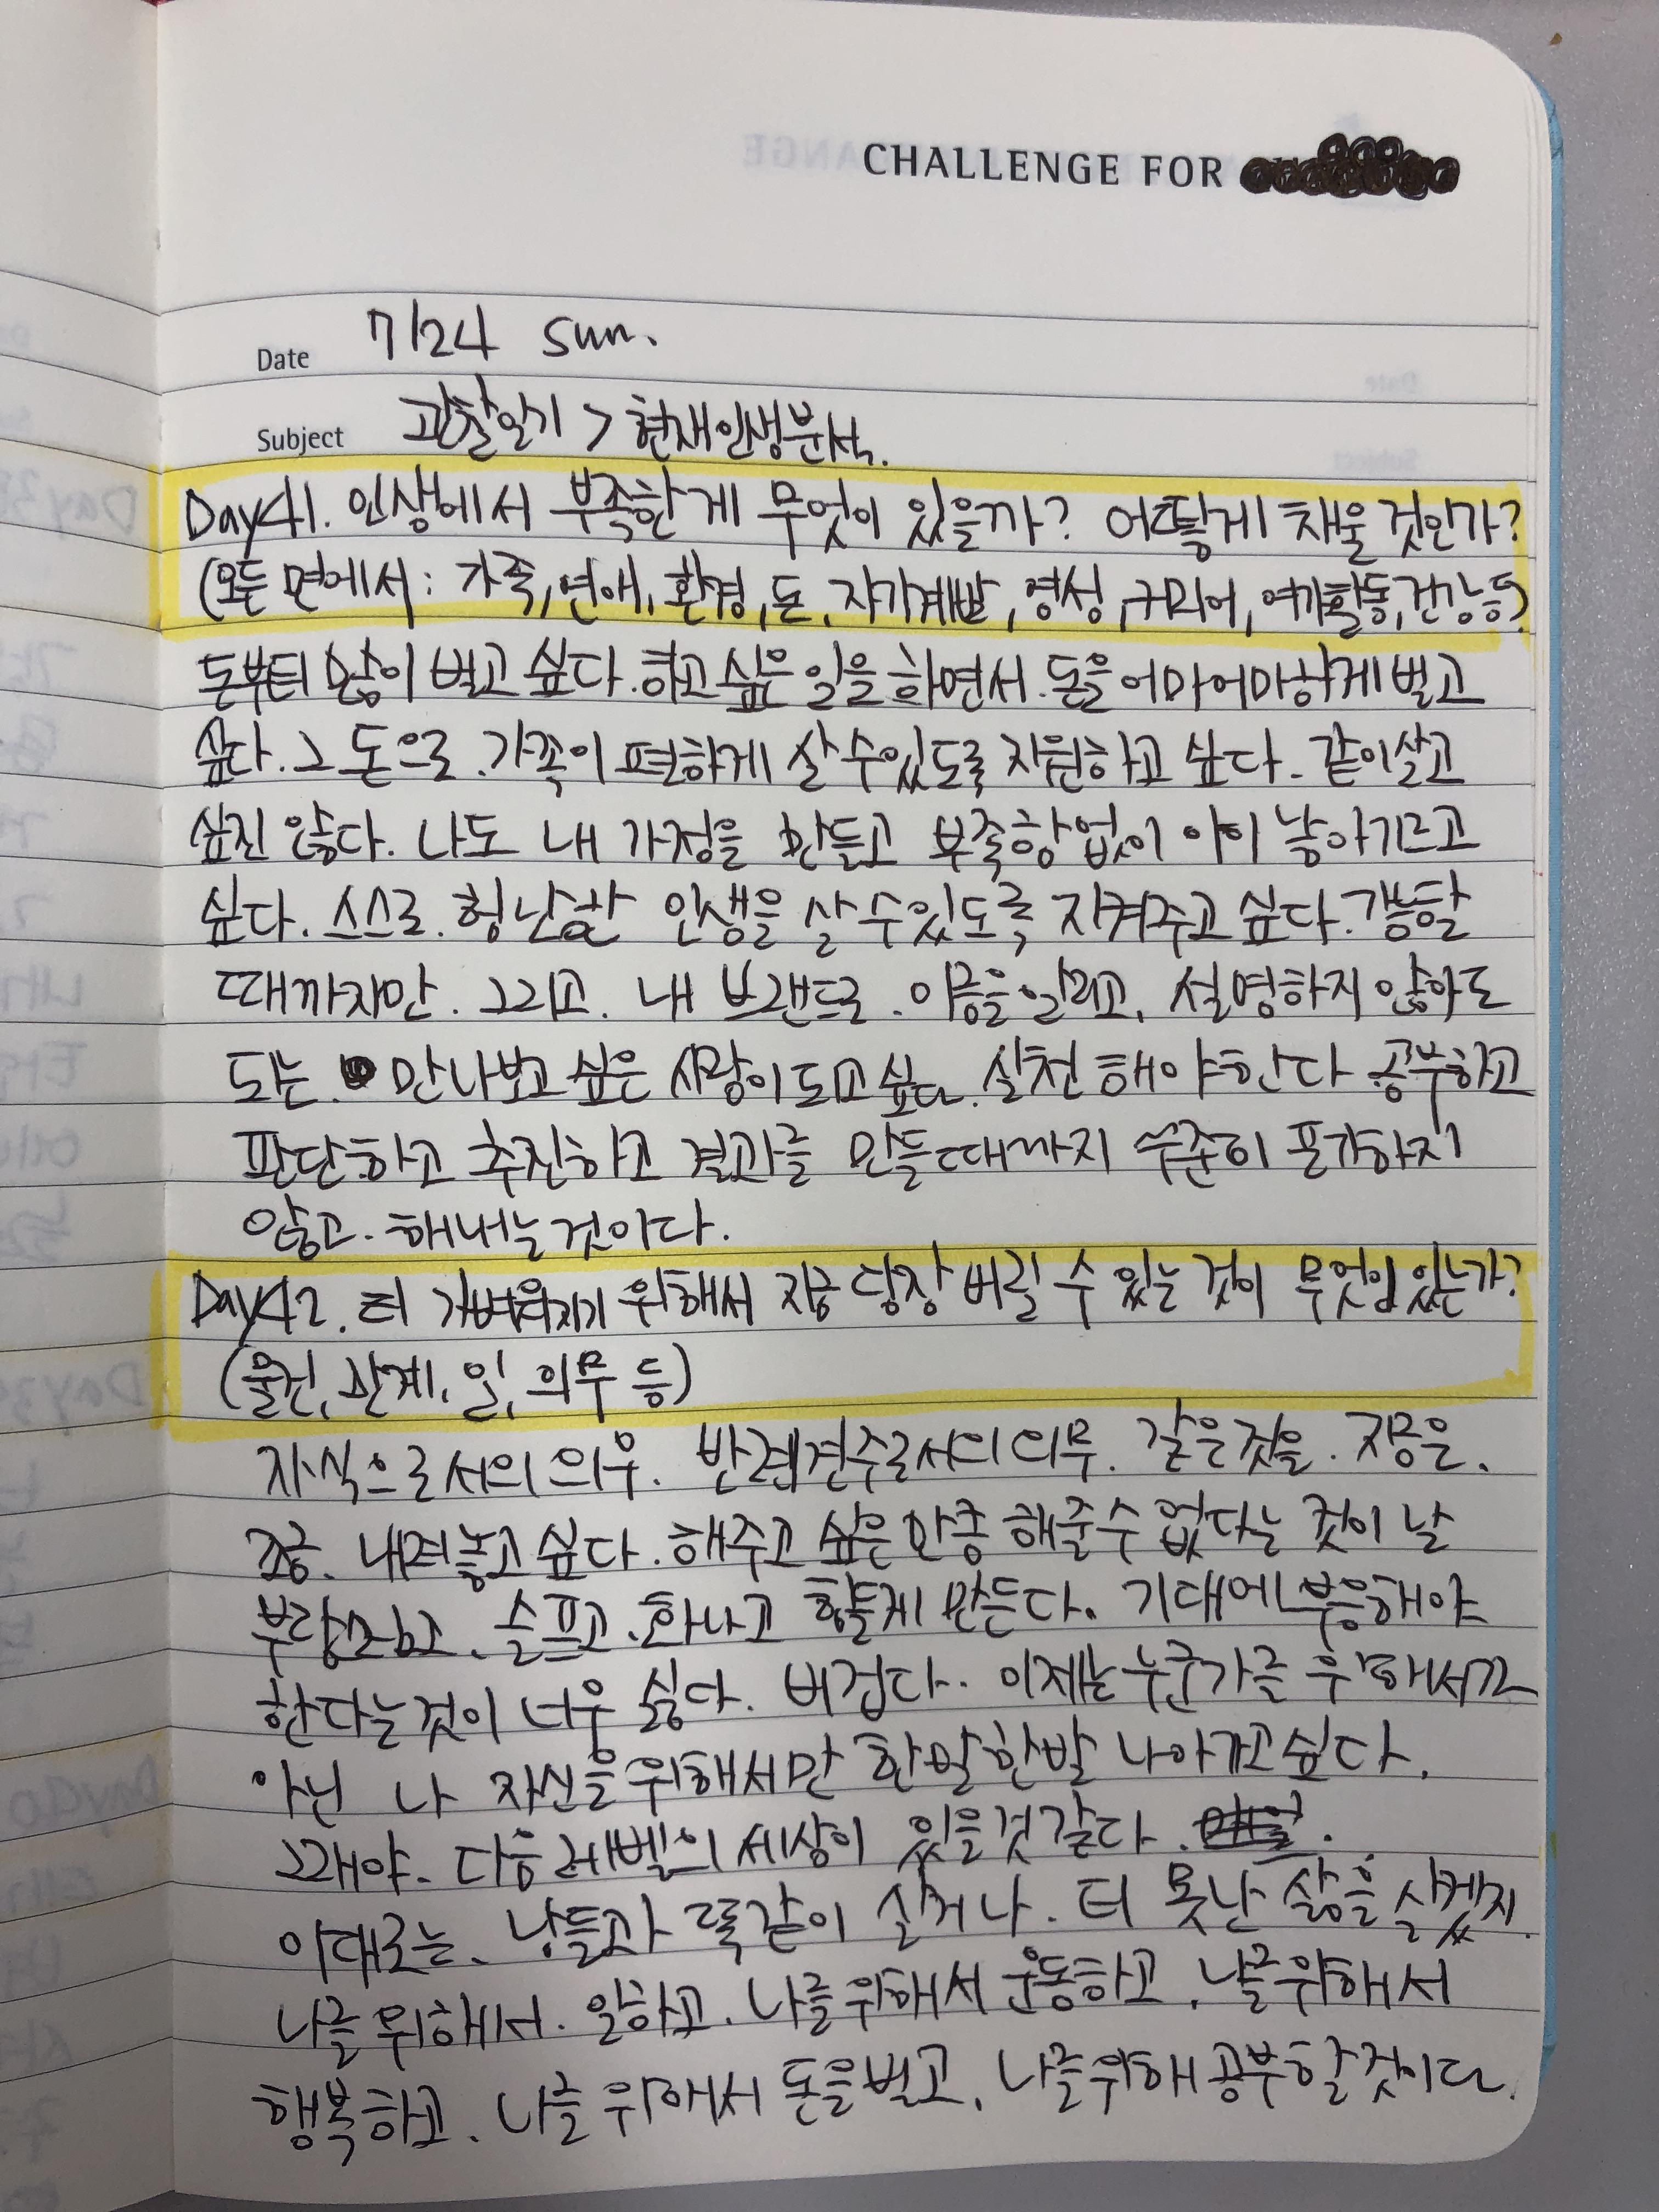 CHALLENGE FOR
Date 7/24 sun.
Subject 관찰일기 > 현재인생분석.
Day41. 인생에서 부족한게 무엇이 있을까? 어떻게 채울 것인가?
(모든 면에서: 가족, 연애, 환경, 돈, 자기계발, 영성, 커리어, 여가활동, 건강 등)
돈부터 많이 벌고 싶다. 하고 싶은 일을 하면서. 돈을 어마어마하게 벌고
싶다. 그 돈으로. 가족이 편하게 살 수 있도록 지원하고 싶다. 같이 살고
싶진 않다. 나도 내 가정을 만들고 부족함 없이 아이 낳아 기르고
싶다. 스스로. 험난한 인생을 살 수 있도록 지켜주고 싶다.
때까지만. 그리고. 내 브랜드로. 이름을 알리고, 설명하지 않아도
되는. 만나보고 싶은 사람이 되고 싶다. 실천해야한다 공부하고
판단하고 추진하고 결과를 만들때까지 꾸준히 포기하지
않고. 해내는 것이다.
Day42. 더 가벼워지기 위해서 지금 당장 버릴 수 있는 것이 무엇이 있는가?
(물건, 관계, 일, 의무 등)
자식으로서의 의무. 반려견주로서의 의무. 같은 것을. 지금은.
조금. 내려놓고 싶다. 해주고 싶은 만큼 해줄 수 없다는 것이 날
부담되고. 슬프고. 화나고 힘들게 만든다. 기대에 부응해야
한다는 것이 너무 싫다. 버겁다. 이제는 누군가를 위해서가
아닌 나 자신을 위해서만 한발 한발 나아가고 싶다.
그래야. 다음 레벨의 세상이 있을 것 같다.
이대로는. 남들과 똑같이 살거나. 더 못난 삶을 살겠지.
나를 위해서. 일하고. 나를 위해서 운동하고. 날 위해서
행복하고. 나를 위해서 돈을 벌고. 나를 위해 공부할 것이다.